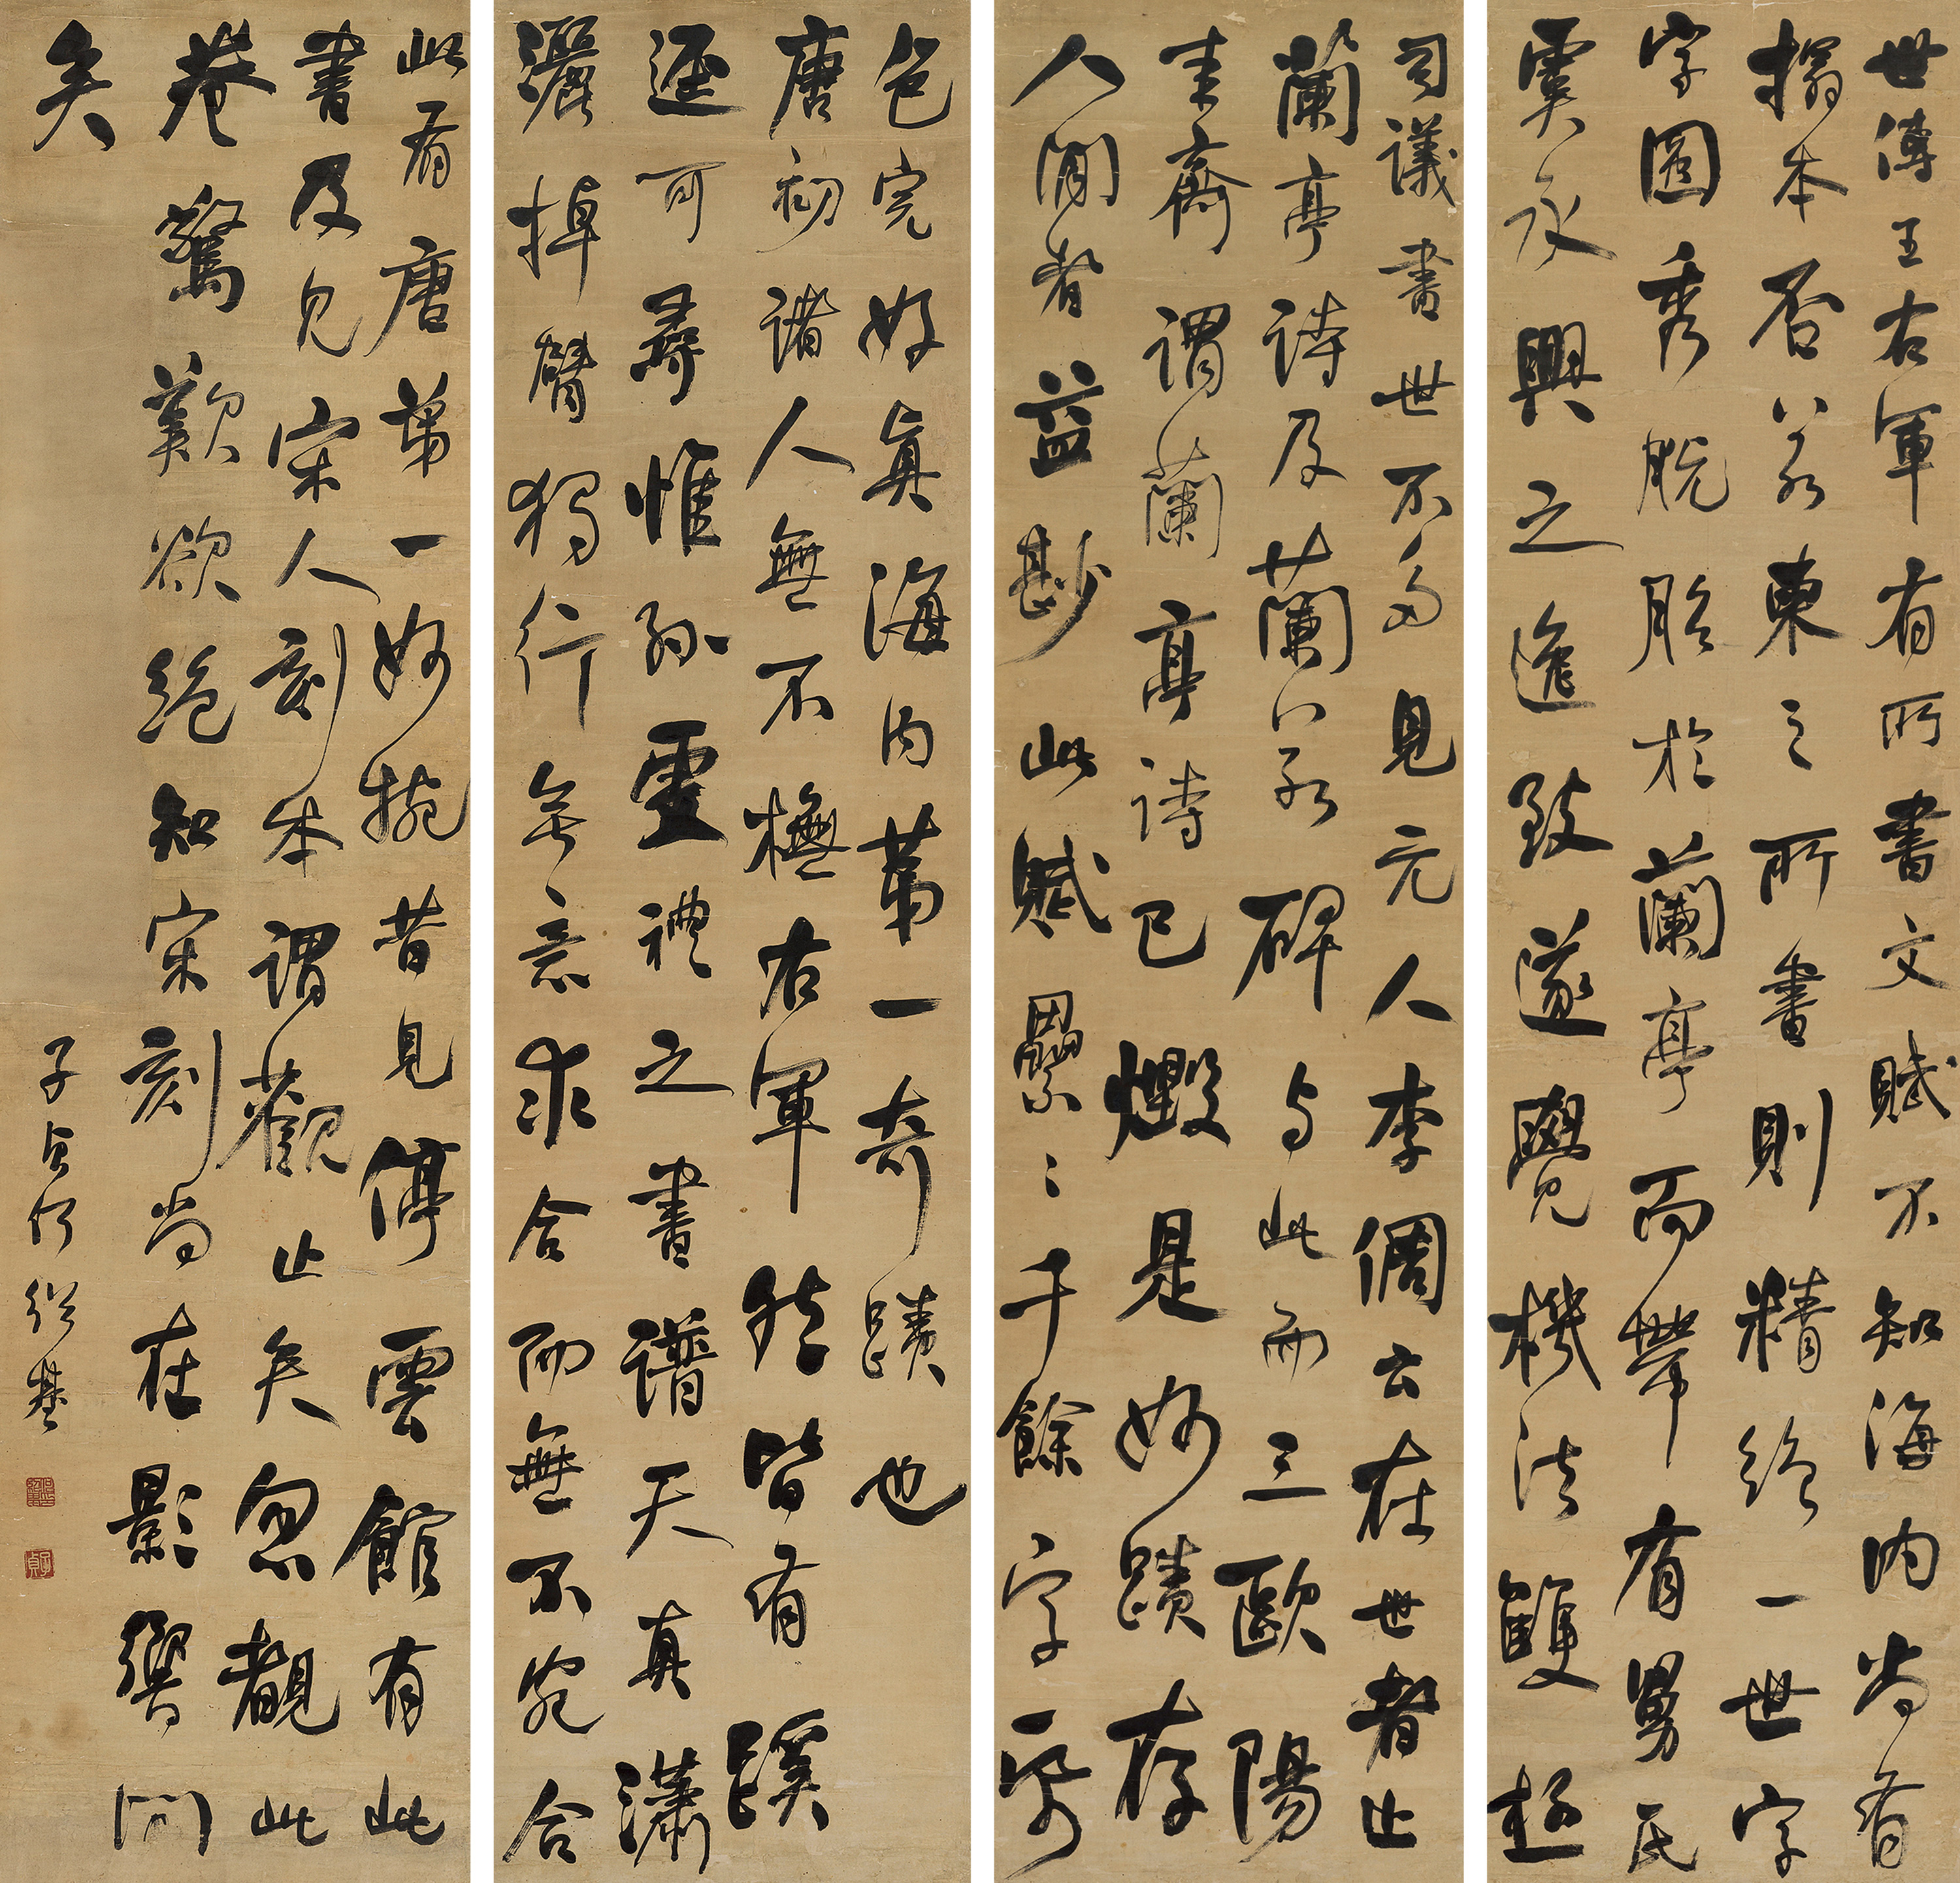 世傳王右軍有所書文賦不知海內尚有
搨本否若柬之所書則精絕一世字
字圓秀脫胎於蘭亭而帶有舅氏
虞永興之逸致遂覺機法雙極
司議書世不多見元人李倜云在世者止
蘭亭詩及蘭若碑与此而三歐陽
圭齋謂蘭亭詩已燬是妙蹟存
人間者益尟此賦纍〻千餘字紙
色完好真海內第一奇蹟也
唐初諸人無不橅右軍然皆有蹊
逕可尋惟孫虔禮之書譜天真瀟
灑掉臂獨行無意求合而無不宛合
此有唐第一妙腕昔見停雲館有此
書及見宋人刻本謂觀止矣忽覩此
卷驚歎欲絕知宋刻尚在影響間
矣
子貞何紹基